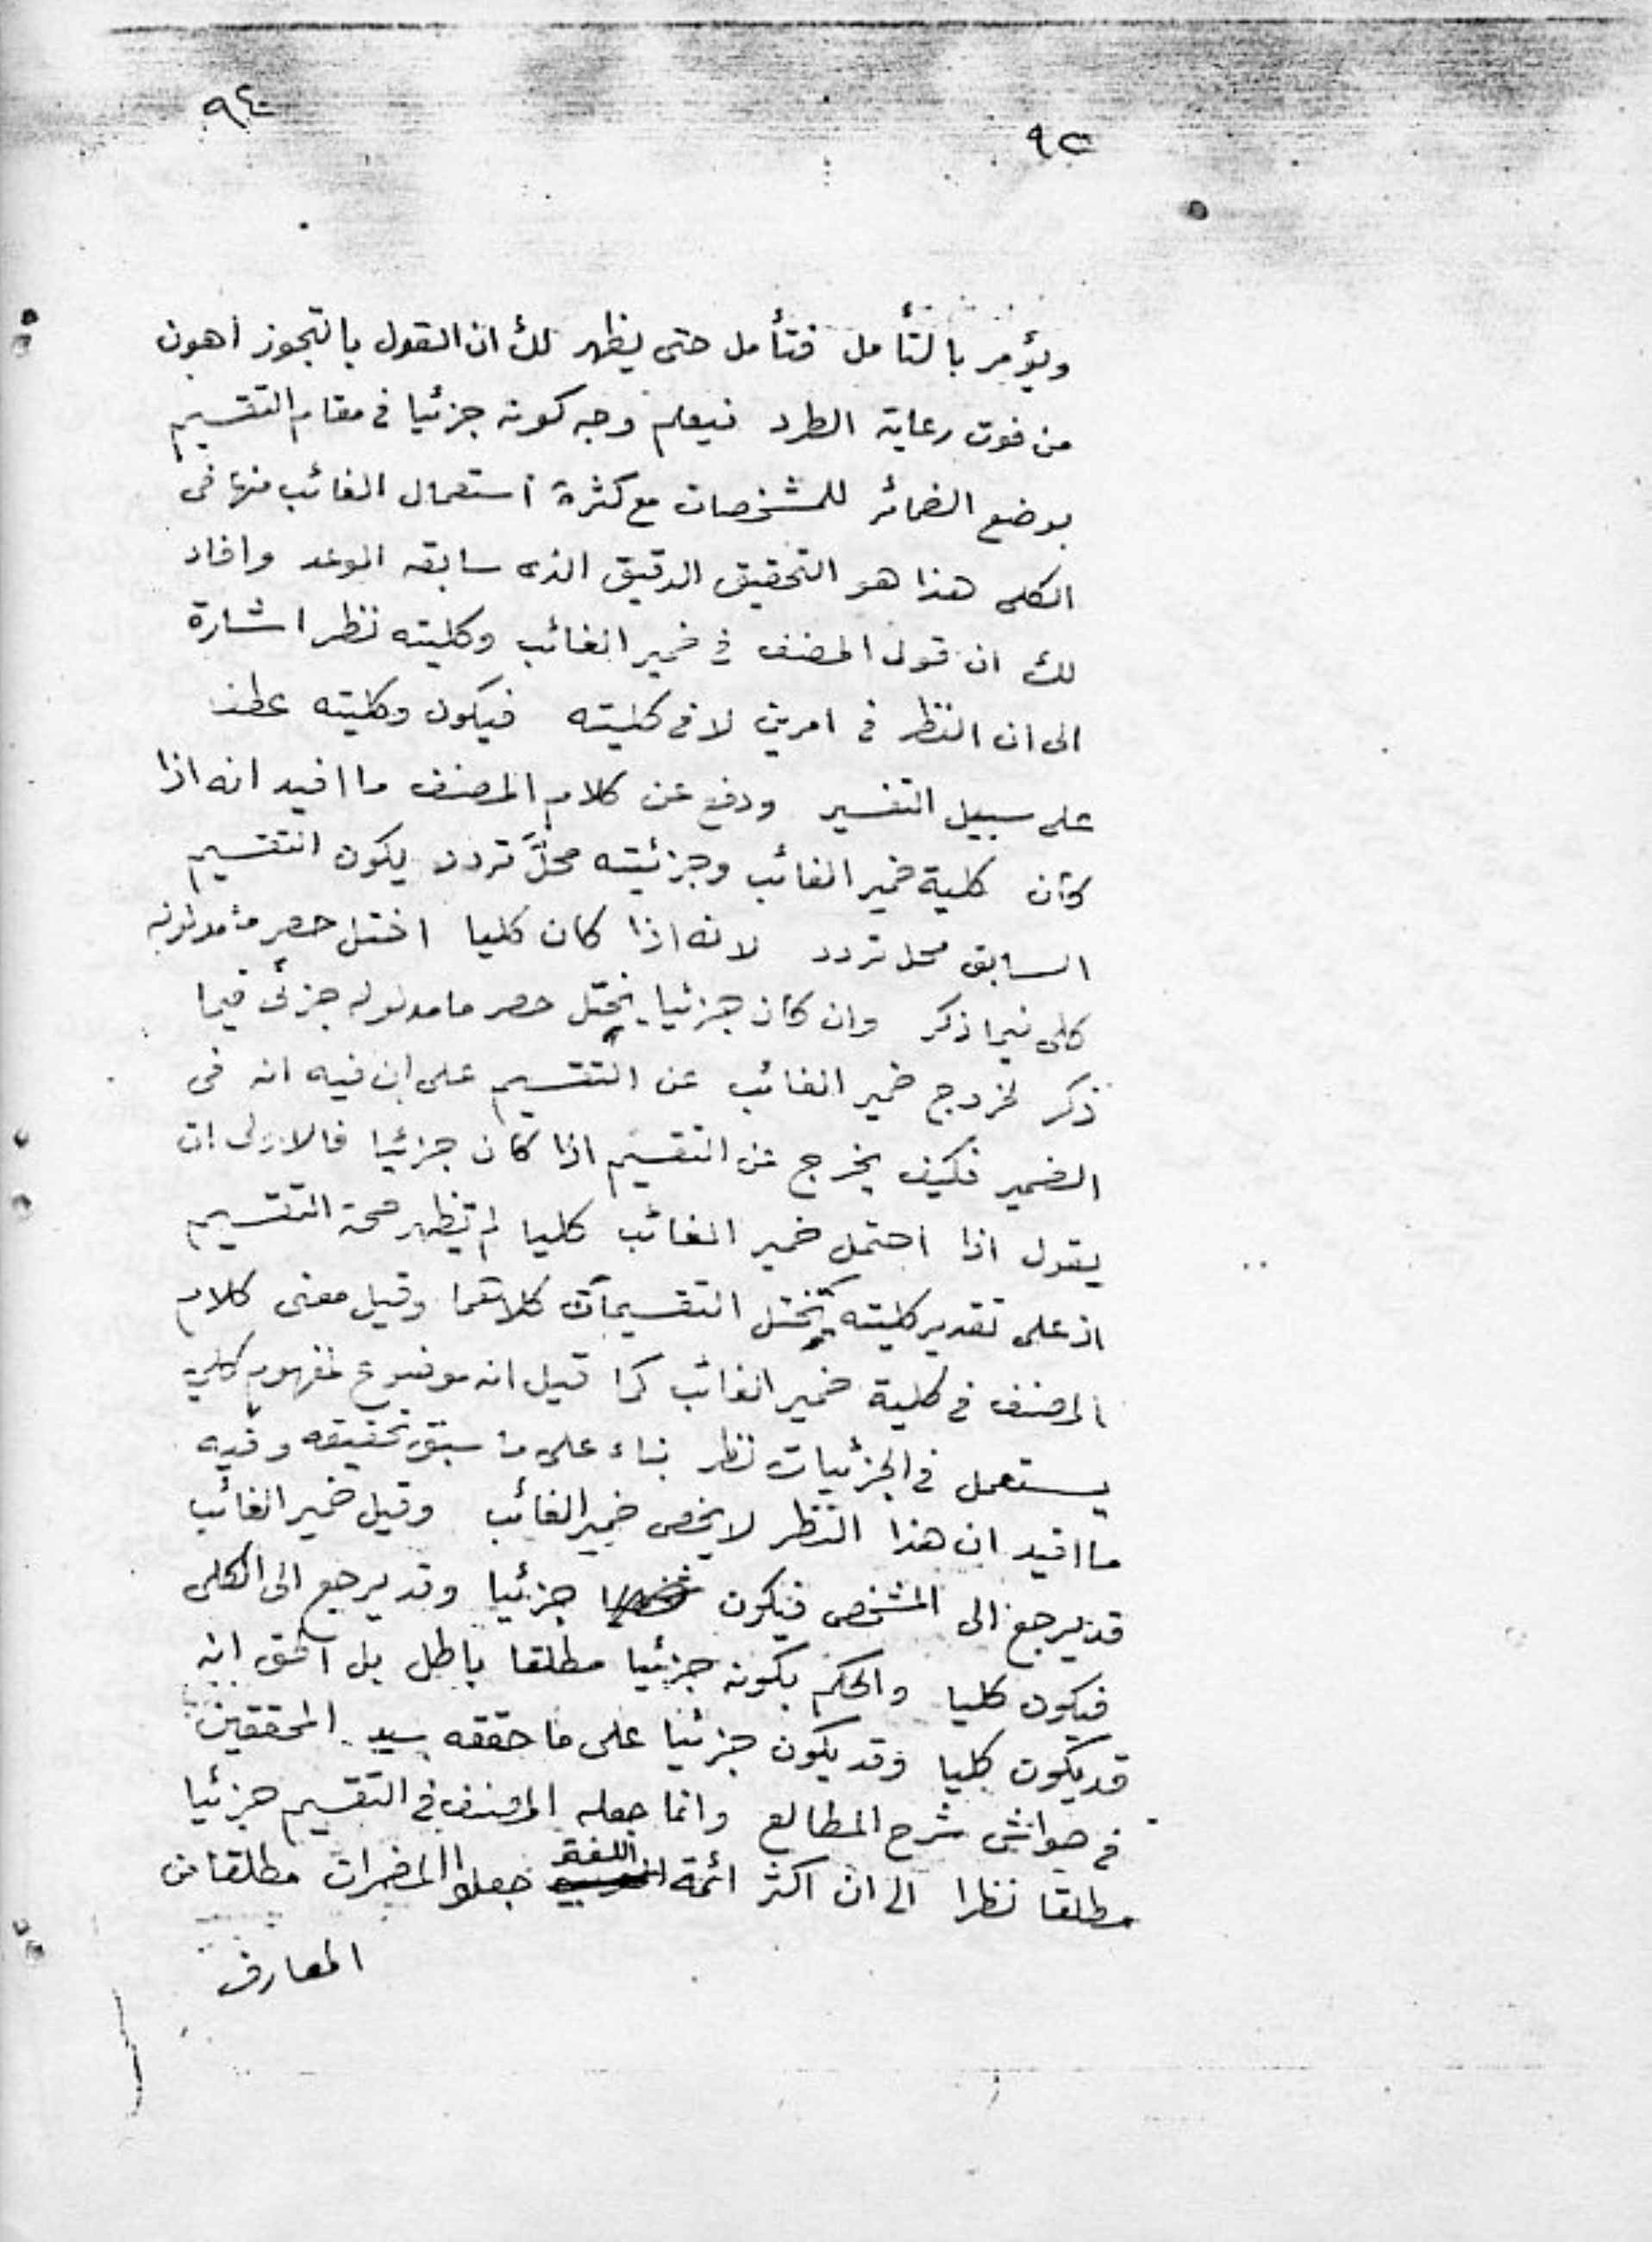 ٩٤
٩٣
ويؤمر بالتأمل فتأمل حتى يظهر لك ان القول بالتجوز اهون
من فوت رعاية الطرد فيعلم وجه كونه جزئيا في مقام التقسيم
بوضع الضمائر للمشخصات مع كثرة استعمال الغائب منها في
الكلى هذا هو التحقيق الدقيق الذى سابقه الوعد وافاد
لك ان قول المصنف في ضمير الغائب وكليته نظر اشارة
الى ان النظر في امرين لا في كليته فيكون وكليته عطف
على سبيل التفسير ودفع عن كلام المصنف ما افيد انه اذا
كان كلية ضمير الغائب وجزئيته محلَّ تردد يكون التقسيم
السابق محل تردد لانه اذا كان كليا اختل حصر ما مدلوله
كلى فيما ذكر وان كان جزئيا يختل حصر ما مدلوله جزئى فيما
ذكر لخروج ضمير الغائب عن التقسيم على ان فيه انه في
الضمير فكيف يخرج عن التقسيم اذا كان جزئيا فالاولى ان
يقول اذا احتمل ضمير الغائب كليا لم تظهر صحة التقسيم
اذ على تقدير كليته يختل التقسيمان كلاهما وقيل معنى كلام
المصنف في كلية ضمير الغائب كما قيل انه موضوع لمفهوم كلي
يستعمل في الجزئيات نظر بناء على ما سبق تحقيقه وفيه
ما افيد ان هذا النظر لا يخص ضمير الغائب وقيل ضمير الغائب
قد يرجع الى المشخص فيكون جزئيا وقد يرجع الى الكلى
فيكون كليا والحكم بكونه جزئيا مطلقا باطل بل الحق انه
قد يكون كليا وقد يكون جزئيا على ما حققه سيد المحققين
في حواشى شرح المطالع وانما جعله المصنف في التقسيم جزئيا
مطلقا نظرا الى ان اكثر ائمة اللغة جعلوا المضمرات مطلقا من
المعارف